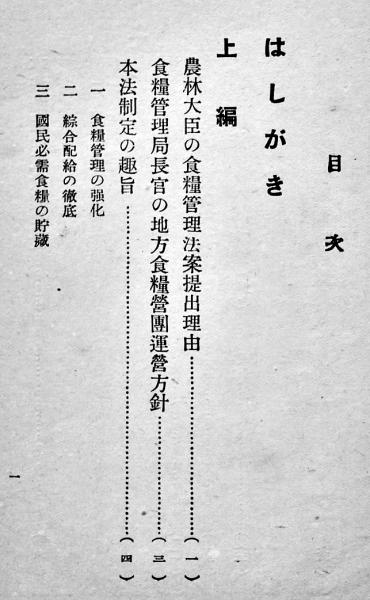 目次
はしがき
上編
農林大臣の食糧管理法案提出理由……………………(一)
食糧管理局長官の地方食糧營團運營方針……………(三)
本法制定の趣旨………………………………………(四)
一 食糧管理の强化
二 綜合配給の徹底
三 國民必需食糧の貯藏
一